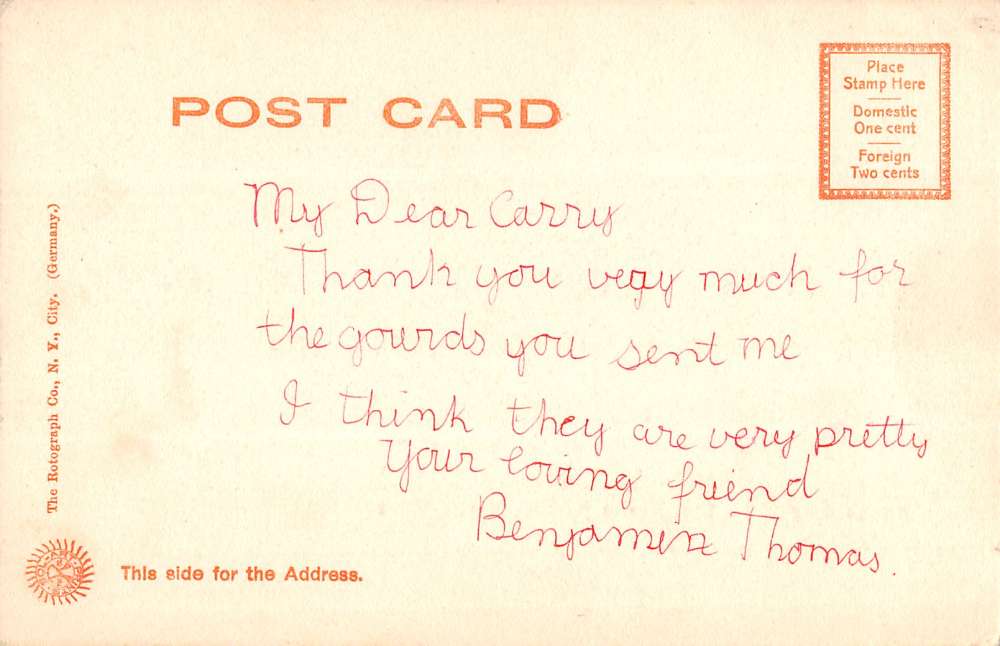 POST CARD
Place
Stamp Here
Domestic
One cent
Foreign
Two cents
My Dear Carry
Thank you very much for
the gourds you sent me
I think they are very pretty
Your loving friend
Benjamin Thomas.
The Rotograph Co., N. Y., City. (Germany.)
This side for the Address.